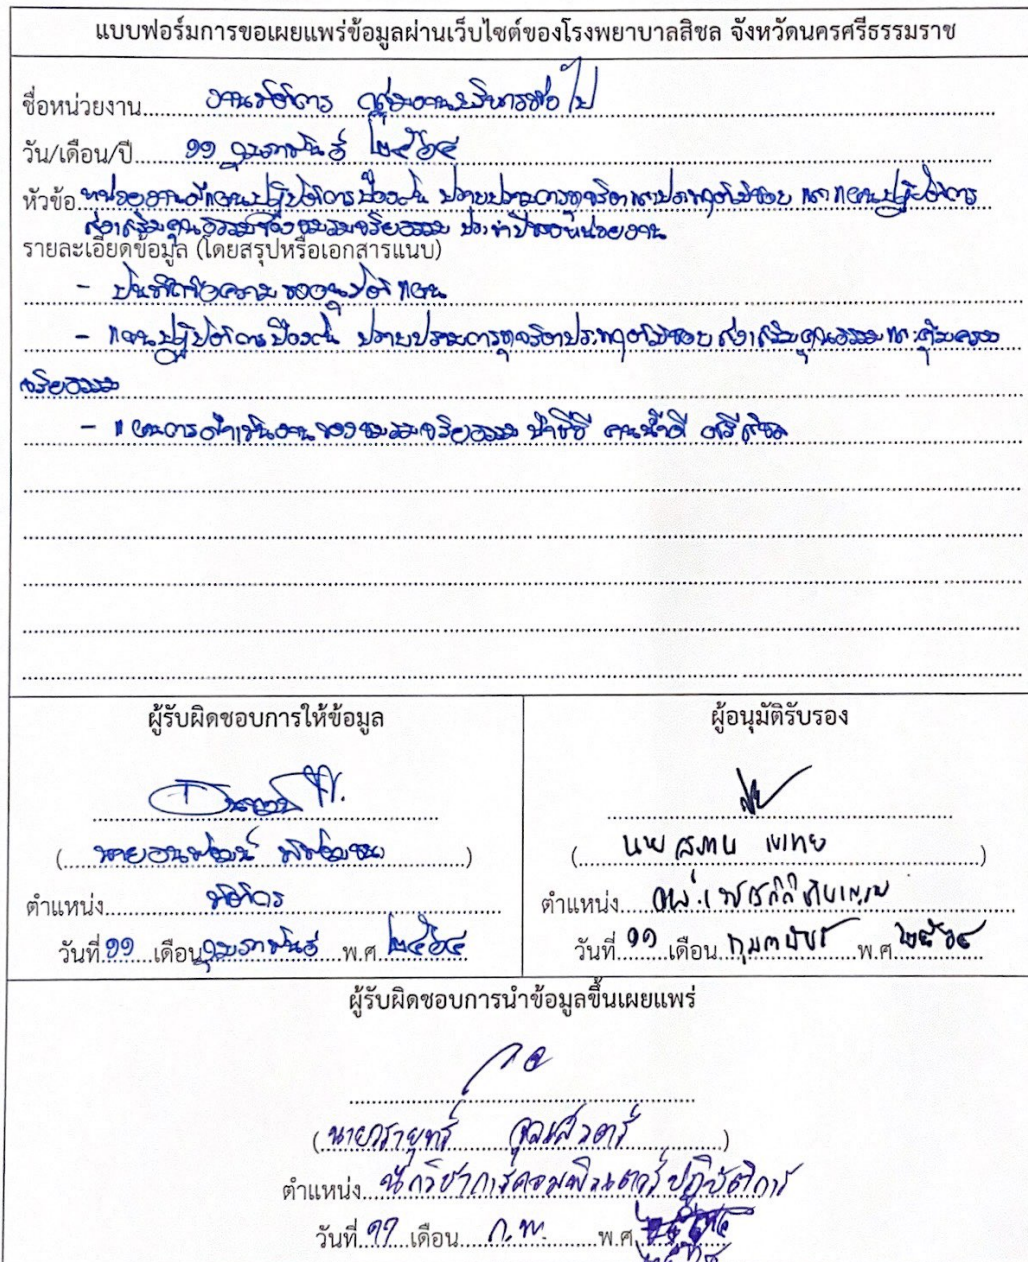 แบบฟอร์มการขอเผยแพร่ข้อมูลผ่านเว็บไซต์ของโรงพยาบาลสิชล จังหวัดนครศรีธรรมราช
ชื่อหน่วยงาน งานนิติการ กลุ่มงานบริหารทั่วไป
วัน/เดือน/ปี ๑๑ กุมภาพันธ์ ๒๕๖๔
หัวข้อ หน่วยงานมีแผนปฏิบัติการป้องกัน ปราบปรามการทุจริตและประพฤติมิชอบ และแผนปฏิบัติการ
ส่งเสริมคุณธรรมของชมรมจริยธรรม ประจำปีของหน่วยงาน
รายละเอียดข้อมูล (โดยสรุปหรือเอกสารแนบ)
- บันทึกข้อความ ขออนุมัติแผน
- แผนปฏิบัติการป้องกัน ปราบปรามการทุจริตประพฤติมิชอบ ส่งเสริมคุณธรรมและคุ้มครอง
จริยธรรม
- แผนการดำเนินงานของชมรมจริยธรรม คนน้ำดี ศรีสิชล
ผู้รับผิดชอบการให้ข้อมูล
ผู้อนุมัติรับรอง
ตำแหน่ง นิติกร
ตำแหน่ง
วันที่ ๑๑ เดือน กุมภาพันธ์ พ.ศ. ๒๕๖๔
วันที่ ๑๑ เดือน กุมภาพันธ์ พ.ศ. ๒๕๖๔
ผู้รับผิดชอบการนำข้อมูลขึ้นเผยแพร่
ตำแหน่ง นักวิชาการคอมพิวเตอร์ปฏิบัติการ
วันที่ ๑๑ เดือน ก.พ. พ.ศ.